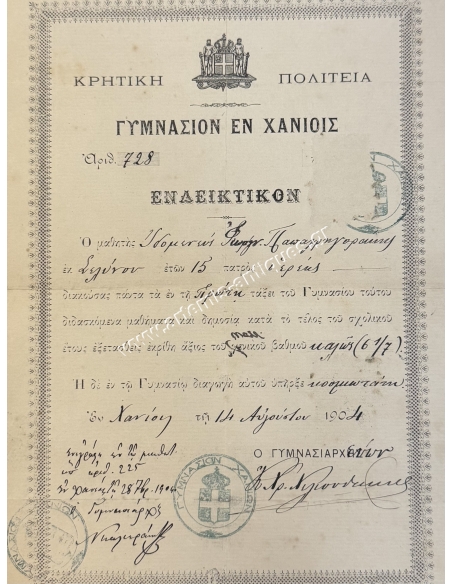 ΚΡΗΤΙΚΗ ΠΟΛΙΤΕΙΑ
ΓΥΜΝΑΣΙΟΝ ΕΝ ΧΑΝΙΟΙΣ
Ἀριθ. 728
ΕΝΔΕΙΚΤΙΚΟΝ
Ὁ μαθητὴς Ἰδομενεὺς Παπαγρηγοράκης
ἐκ Σελίνου ἐτῶν 15 πατρὸς ἱερέως
διακούσας πάντα τὰ ἐν τῇ Πρώτῃ τάξει τοῦ Γυμνασίου τούτου
διδασκόμενα μαθήματα καὶ δημοσίᾳ κατὰ τὸ τέλος τοῦ σχολικοῦ
ἔτους ἐξετασθεὶς ἐκρίθη ἄξιος τοῦ γενικοῦ βαθμοῦ καλῶς (6 1/7)
Ἡ δὲ ἐν τῷ Γυμνασίῳ διαγωγὴ αὐτοῦ ὑπῆρξε κοσμιωτάτη
Ἐν Χανίοις τῇ 14 Αὐγούστου 1904
Ο ΓΥΜΝΑΣΙΑΡΧΕΥΩΝ
ἀριθ. 225
ΓΥΜΝΑΣΙΟΝ ΧΑΝΙΩΝ